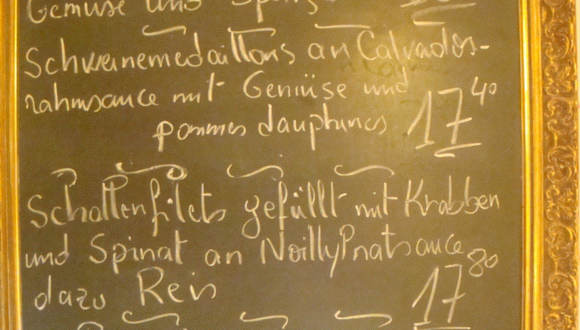 Gemüse und
Schweinemedaillons an Calvados-
rahmsauce mit Gemüse und
pommes dauphines 17 40
Schollenfilets gefüllt mit Krabben
und Spinat an NoillyPratsauce
dazu Reis 17 80